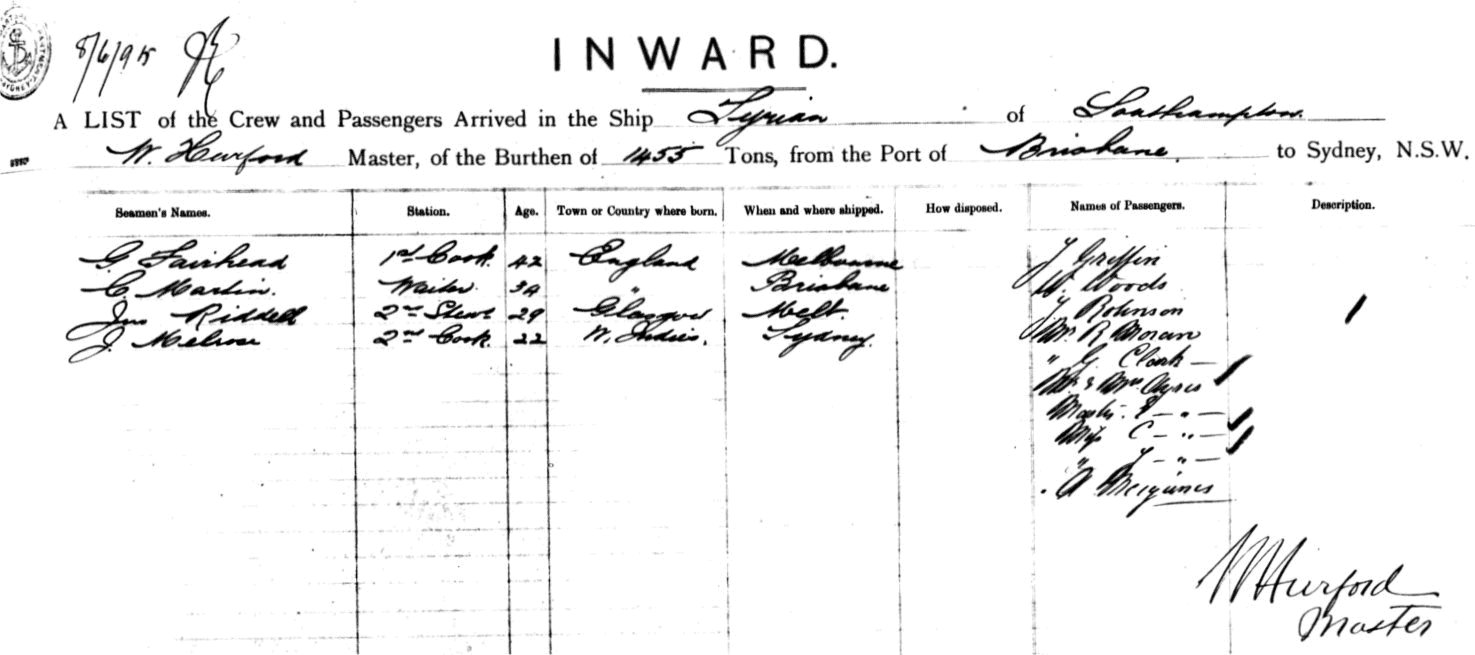 8/6/95
INWARD.
A LIST of the Crew and Passengers Arrived in the Ship Syrian of Southampton
W. Hurford Master, of the Burthen of 1455 Tons, from the Port of Brisbane, to Sydney, N.S.W.
Seamen's Names. Station. Age. Town or Country where born. When and where shipped. How disposed. Names of Passengers. Description.
G. Fairhead 1st Cook. 42 England Melbourne Griffin
C. Martin. Waiter. 39 " Brisbane W. Woods
Jno Riddell 2nd Stew 29 Glasgow Melb. Robinson
J. Melrose 2nd Cook. 22 W. Indies. Sydney. Mr. R. Moran
" G. Clark —
Mr & Mrs. Ayres
Mastr. — " —
Miss C — " —
" — " —
W Hurford
Master